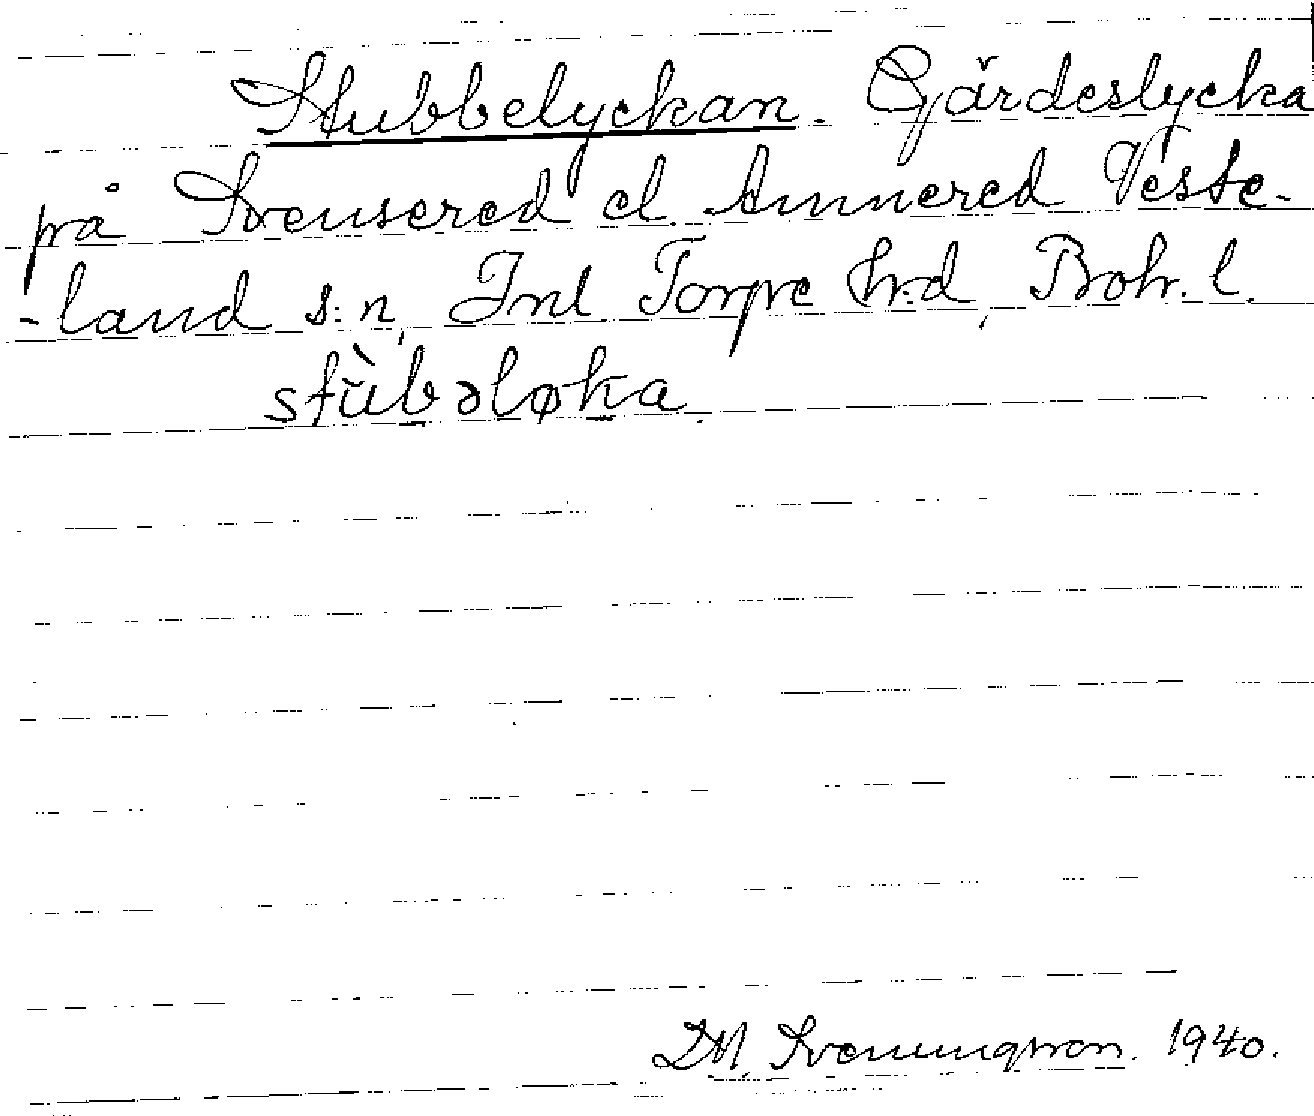 Stubbelyckan. Gärdeslycka
på Svensered el. Annered Veste-
-land s:n, Inl Torpe hrd, Boh. l.
stùbəløka.
DM. Sveningsson. 1940.